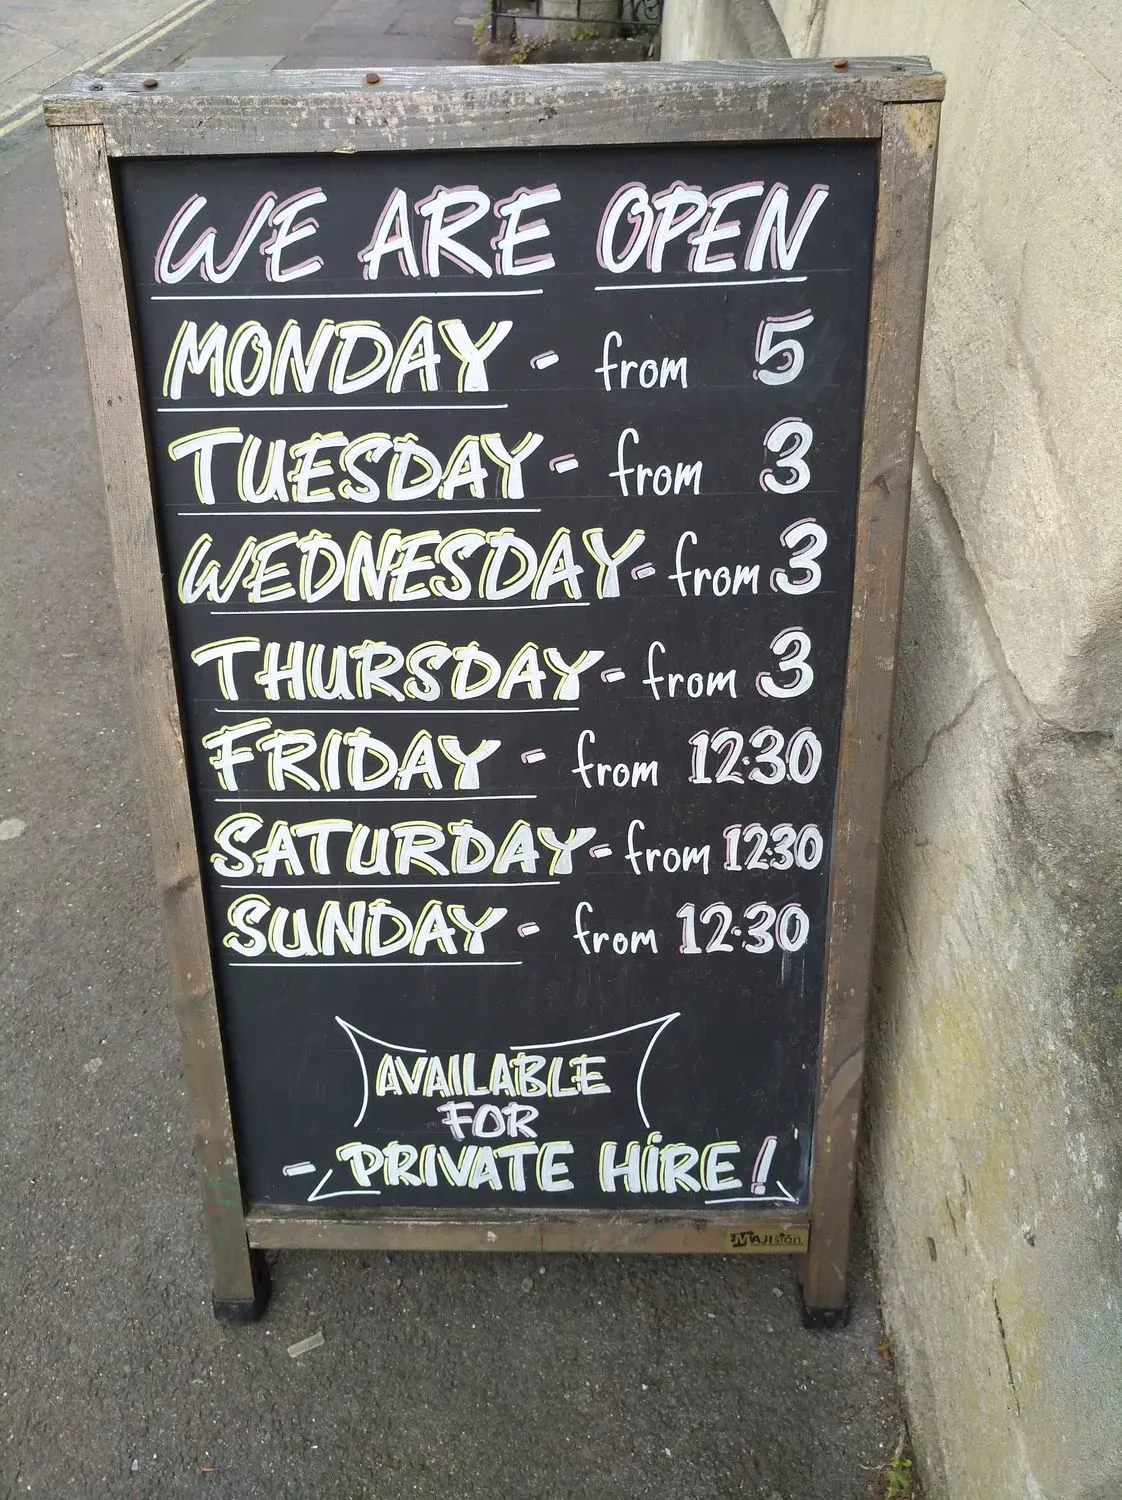 WE ARE OPEN
MONDAY - from 5
TUESDAY - from 3
WEDNESDAY - from 3
THURSDAY - from 3
FRIDAY - from 12·30
SATURDAY - from 12·30
SUNDAY - from 12·30
AVAILABLE
FOR
- PRIVATE HIRE!
MAJIsign